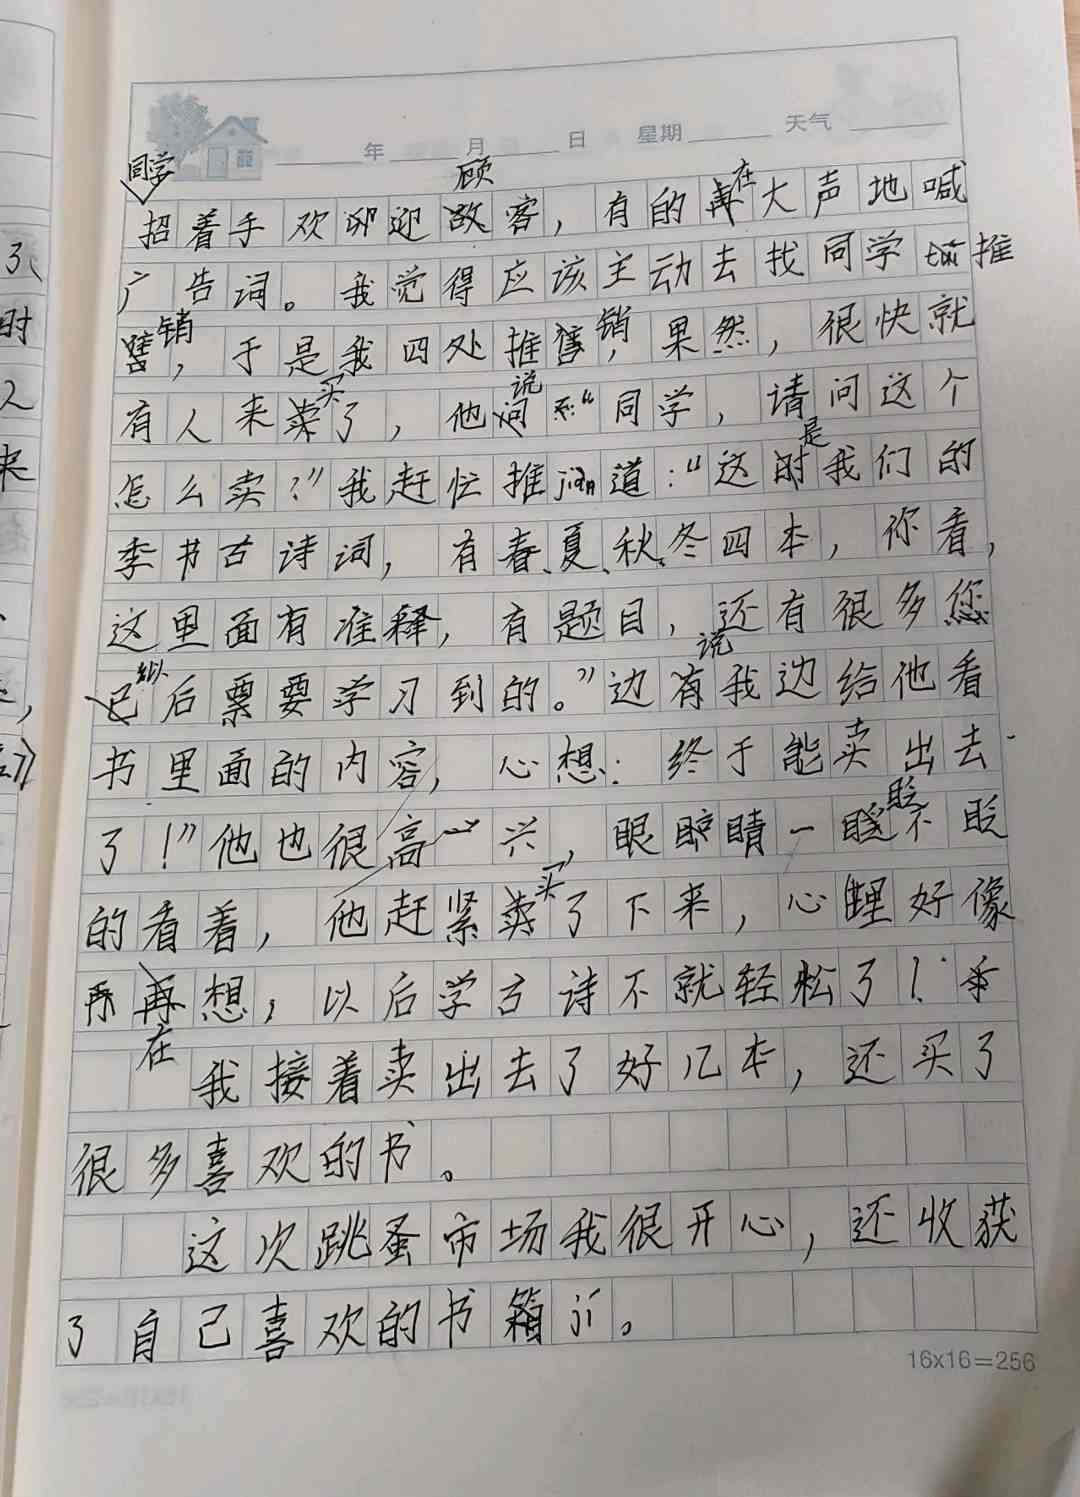 年 月 日 星期 天气
同学 顾 在
招着手欢迎客，有的大声地喊
广告词。我觉得应该主动去找同学推
销，于是我四处推销，果然，很快就
有人来买了，他说“同学，请问这个
怎么卖？”我赶忙推jiàn道：“这是我们的
季书古诗词，有春、夏、秋、冬四本，你看，
这里面有准释，有题目，还有很多您
以后票要学习到的。”边说我边给他看
书里面的内容，心想：终于能卖出去
了！”他也很高兴，眼睛一眨不眨
的看着，他赶紧买了下来，心里好像
在想，以后学古诗不就轻松了！
我接着卖出去了好几本，还买了
很多喜欢的书。
这次跳蚤市场我很开心，还收获
了自己喜欢的书箱jí。
16x16=256